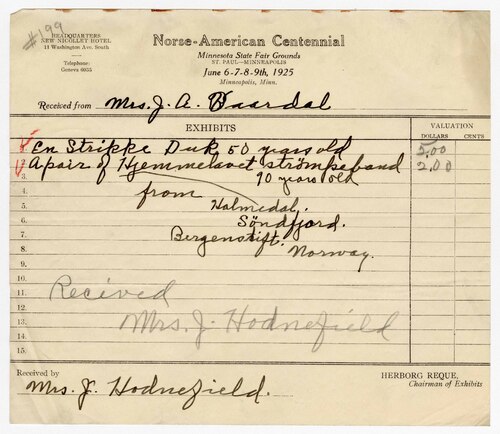 #199
HEADQUARTERS
NEW NICOLLET HOTEL
11 Washington Ave. South
Telephone:
Geneva 6035
Norse-American Centennial
Minnesota State Fair Grounds
ST. PAUL—MINNEAPOLIS
June 6-7-8-9th, 1925
Minneapolis, Minn.
Received from Mrs. J. A. Baardal
EXHIBITS
VALUATION
DOLLARS CENTS
1. En Strikke Duk 50 years old 5.00
2. A pair of Hjemmelavet strömpebaand 2.00
3. 90 years old
4. from
5. Holmedal,
6. Söndfjord.
7. Bergenstift.
8. Norway.
9.
10.
11. Recived
12.
13. Mrs. J. Hodnefield
14.
15.
Received by
Mrs. J. Hodnefield.
HERBORG REQUE,
Chairman of Exhibits